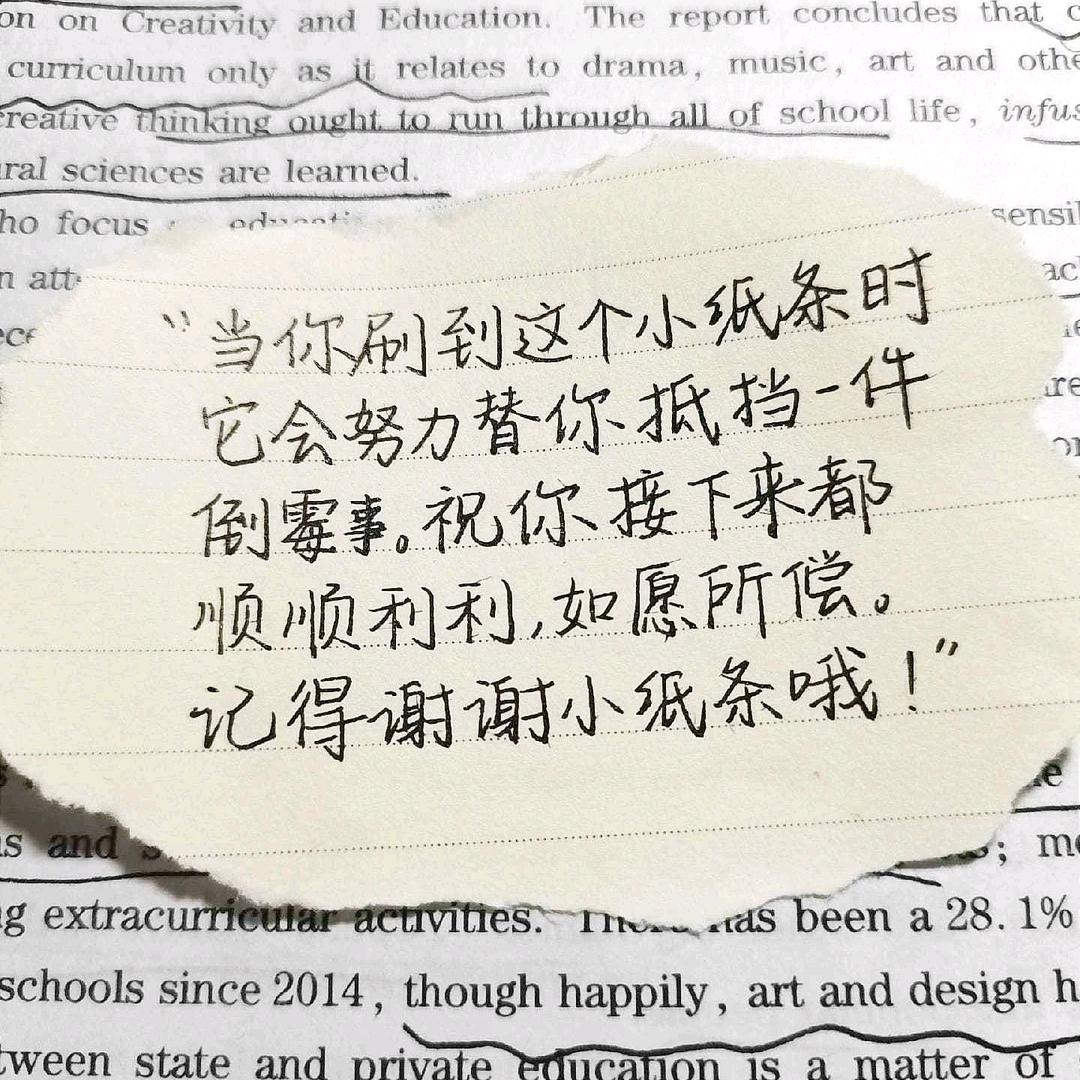 on on Creativity and Education. The report concludes that
curriculum only as it relates to drama, music, art and
creative thinking ought to run through all of school life,
sciences are learned.
focus
“当你刷到这个小纸条时
它会努力替你抵挡一件
倒霉事。祝你接下来都
顺顺利利,如愿所偿。
记得谢谢小纸条哦!”
and
extracurricular activities. There has been a 28.1%
schools since 2014, though happily, art and design
state and private education is a matter of